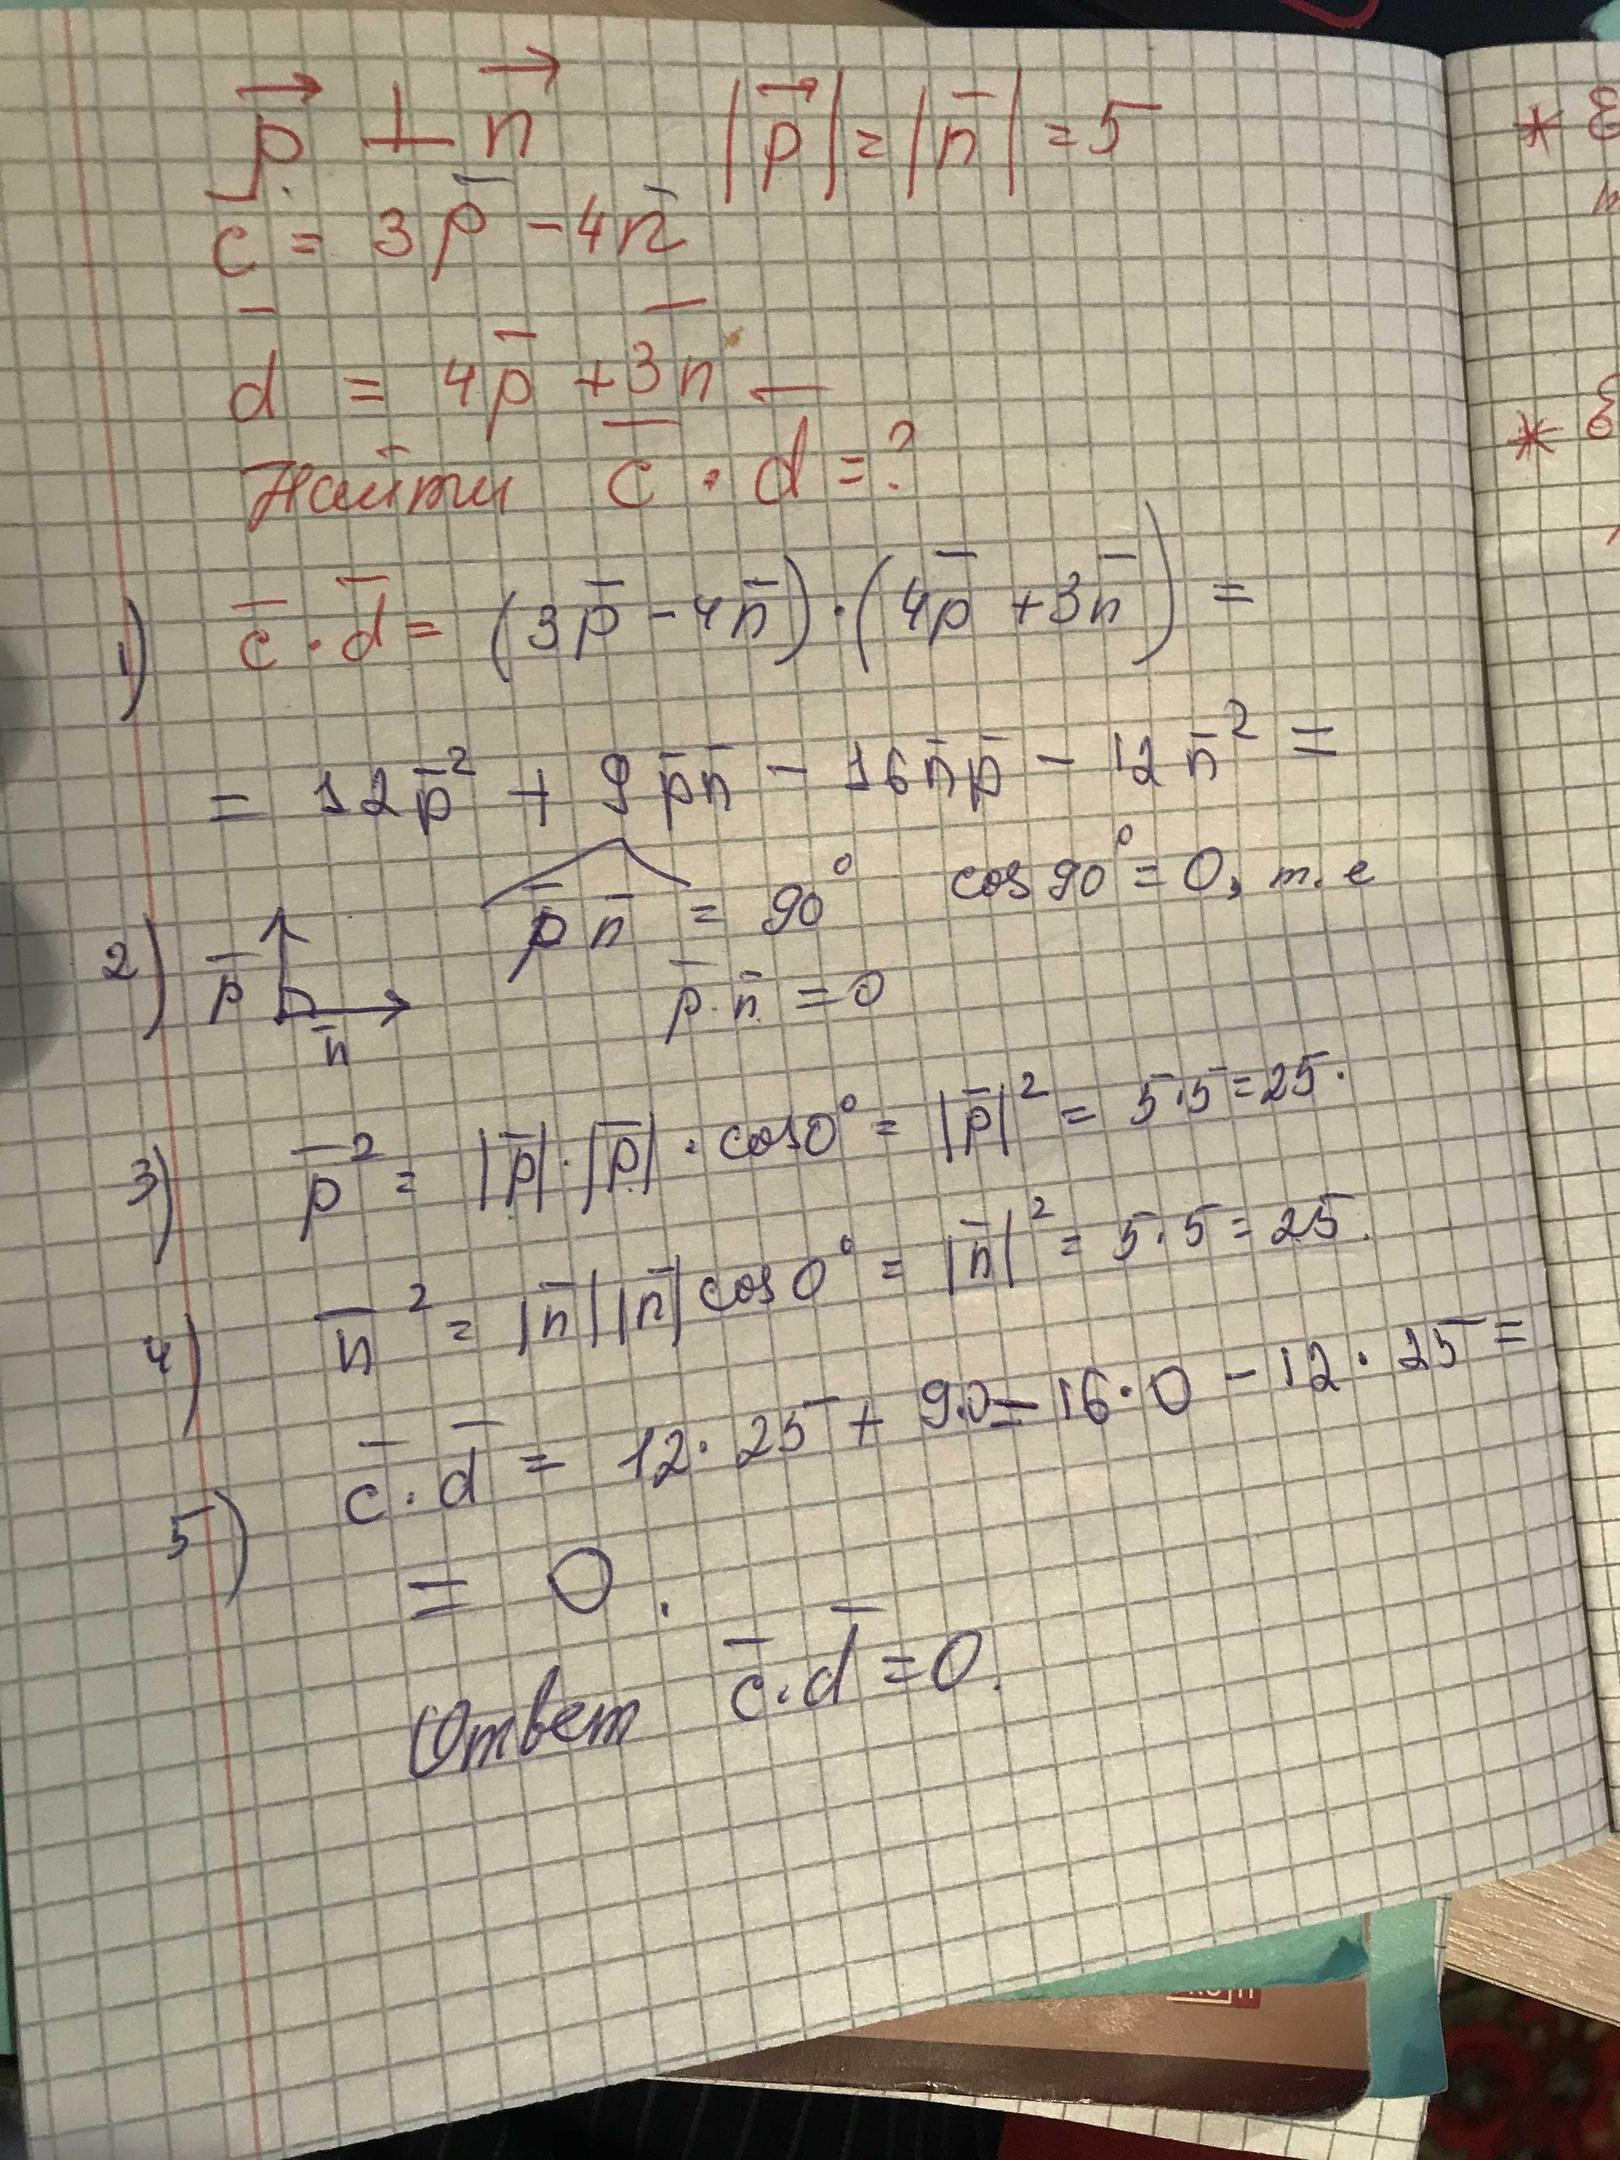 p ⊥ n |p| = |n| = 5
c = 3p - 4n
d = 4p + 3n
Найти c · d = ?
1) c · d = (3p - 4n) · (4p + 3n) =
= 12p² + 9pn - 16np - 12n² =
pn = 90° cos 90° = 0, т.е
2) p n p · n = 0
3) p² = |p| · |p| · cos 0° = |p|² = 5·5 = 25.
4) n² = |n| |n| cos 0° = |n|² = 5·5 = 25.
5) c · d = 12 · 25 + 9·0 - 16·0 - 12 · 25 =
= 0.
Ответ c · d = 0.